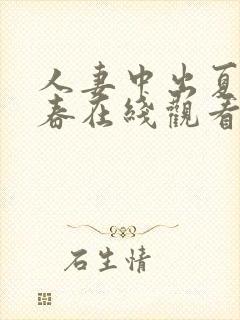 人妻中出夏
春在綫觀看
石生情